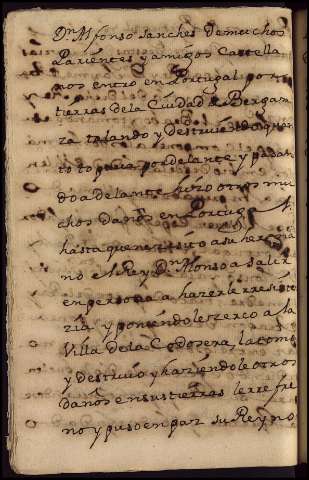 Dn. Alfonso sanches de muchos
Parientes y amigos Castella
nos entro en Portugal por
tierras de la Ciudad de Bergan
za talando y destruiē do quan
to topava por delante y pasan
do adelante hizo otros mu
chos daños en Portugal
hasta que nesesito a su herma
no el Rey Dn Alonso a salir
en persona a hazerle resiste
zia y poniendole zerco a la
Villa de la Codosera, la tomo
y destruio y haziendole otros
daños en sus tierras le refre
no y puso en paz su Reyno